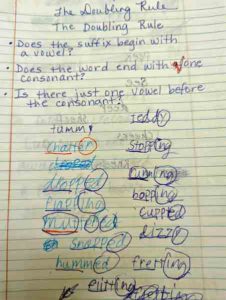 The Doubling Rule
The Doubling Rule
• Does the suffix begin with
a vowel?
• Does the word end with one
consonant?
• Is there just one vowel before
the consonant?
tummy teddy
chatter Stopping
dropped running
flapping hopping
cupped
snapped dizzy
hummed fretting